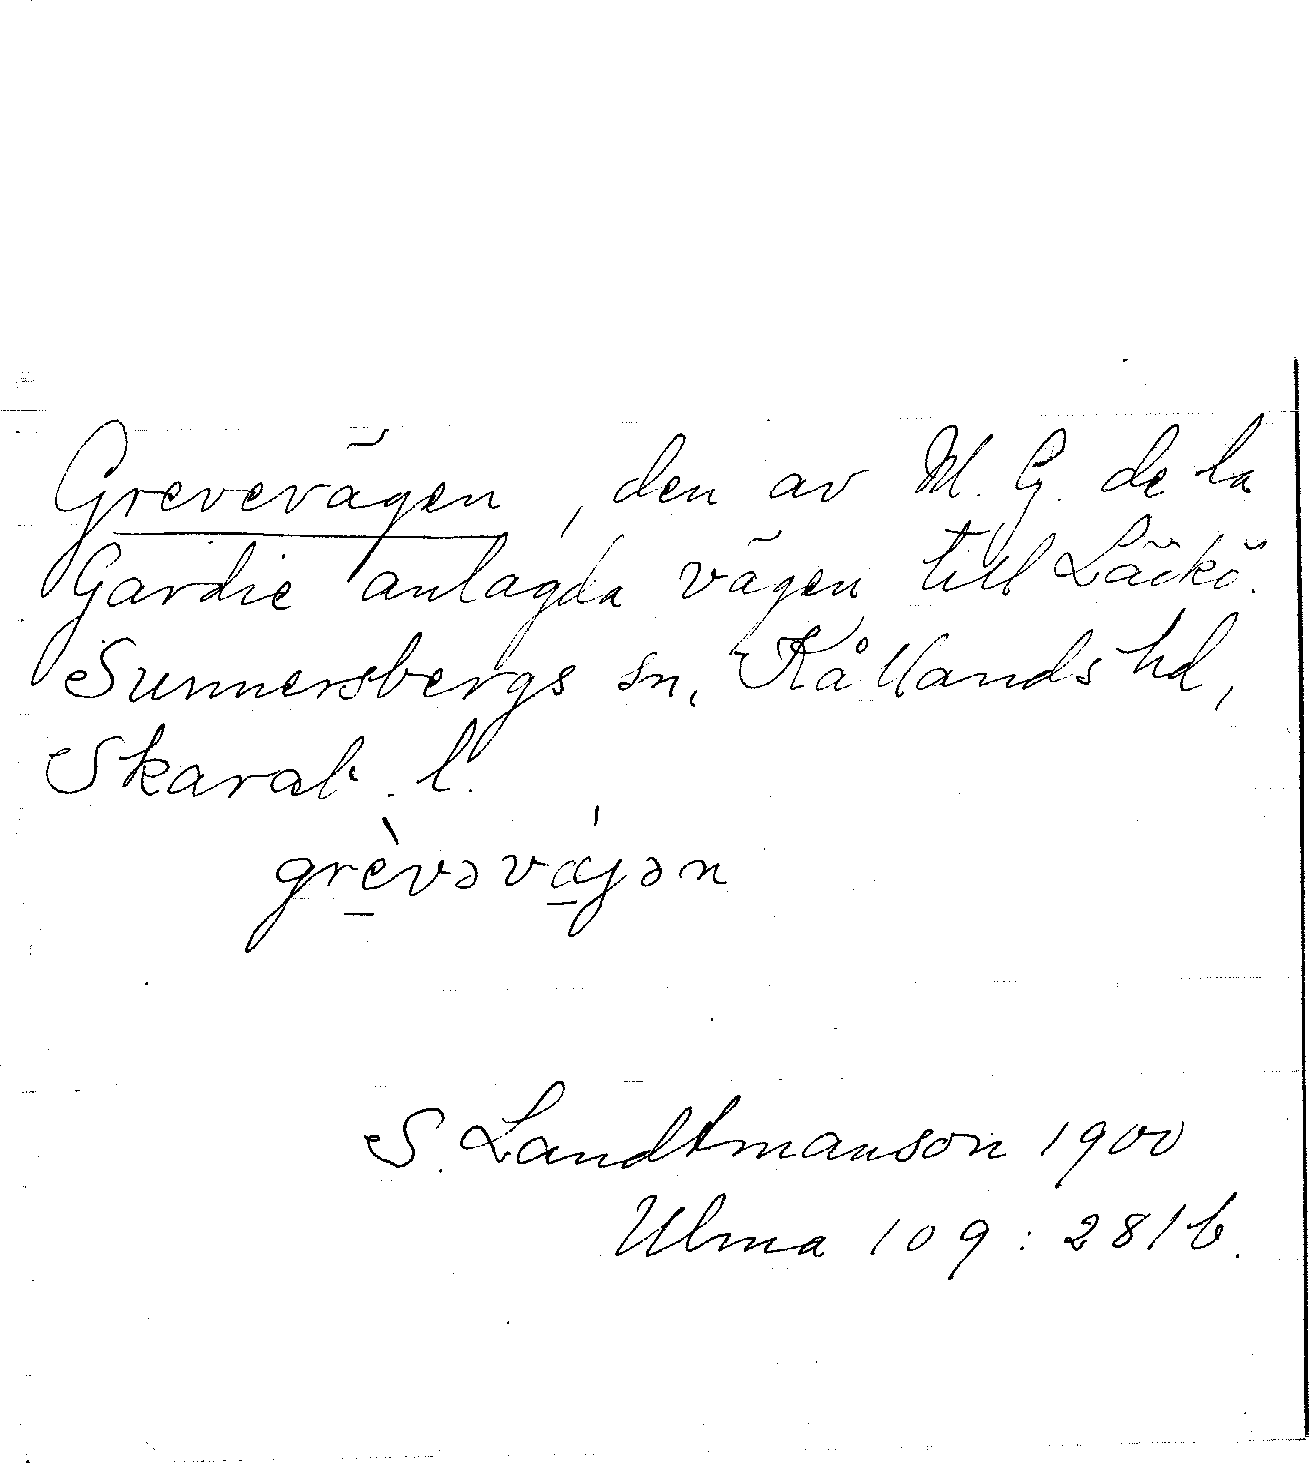 Grevevägen, den av M. G. de la
Gardie anlagda vägen till Läckö.
Sunnersbergs sn, Kållands hd,
Skarab. l.
grèvəvájən
S. Landtmanson 1900
Ulma 109:281b.